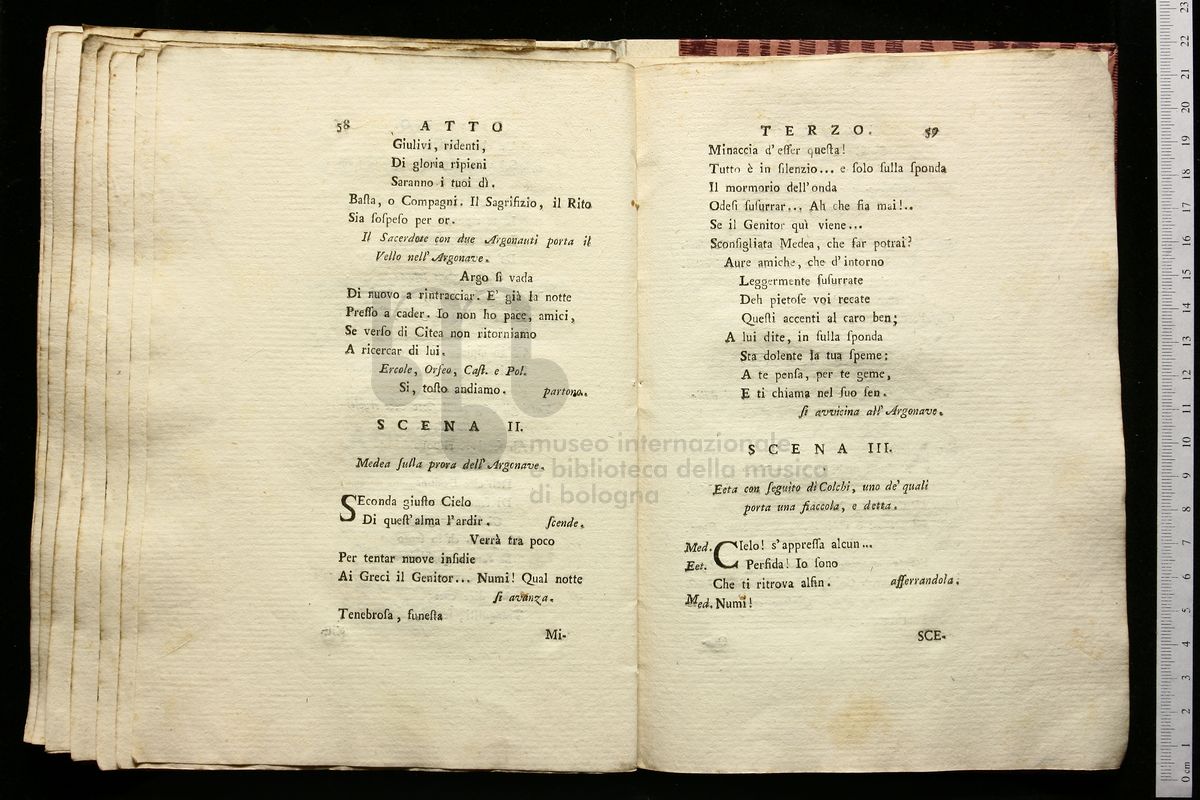 58 ATTO
Giulivi, ridenti,
Di gloria ripieni
Saranno i tuoi dì.
Baſta, o Compagni. Il Sagrifizio, il Rito
Sia ſoſpeſo per or.
Il Sacerdote con due Argonauti porta il
Vello nell'Argonave.
Argo ſi vada
Di nuovo a rintracciar. E' già la notte
Preſſo a cader. Io non ho pace, amici,
Se verſo di Citea non ritorniamo
A ricercar di lui.
Ercole, Orfeo, Caſt. e Pol.
Si, toſto andiamo. partono.
SCENA II.
Medea ſulla prora dell'Argonave.
SEconda giuſto Cielo
Di queſt'alma l'ardir. ſcende.
Verrà tra poco
Per tentar nuove inſidie
Ai Greci il Genitor... Numi! Qual notte
ſi avanza.
Tenebroſa, funeſta
Mi-
TERZO. 59
Minaccia d'eſſer queſta!
Tutto è in ſilenzio... e ſolo ſulla ſponda
Il mormorio dell'onda
Odeſi ſuſurrar... Ah che fia mai!..
Se il Genitor quì viene...
Sconſigliata Medea, che far potrai?
Aure amiche, che d'intorno
Leggermente ſuſurrate
Deh pietoſe voi recate
Queſti accenti al caro ben;
A lui dite, in ſulla ſponda
Sta dolente la tua ſpeme;
A te penſa, per te geme,
E ti chiama nel ſuo ſen.
ſi avvicina all'Argonave.
SCENA III.
Eeta con ſeguito di Colchi, uno de' quali
porta una fiaccola, e detta.
Med. CIelo! s'appreſſa alcun...
Eet. Perfida! Io ſono
Che ti ritrova alfin. afferrandola.
Med. Numi!
SCE-
museo internazionale
e biblioteca della musica
di bologna
23
22
21
20
19
18
17
16
15
14
13
12
11
10
9
8
7
6
5
4
3
2
1
0 cm